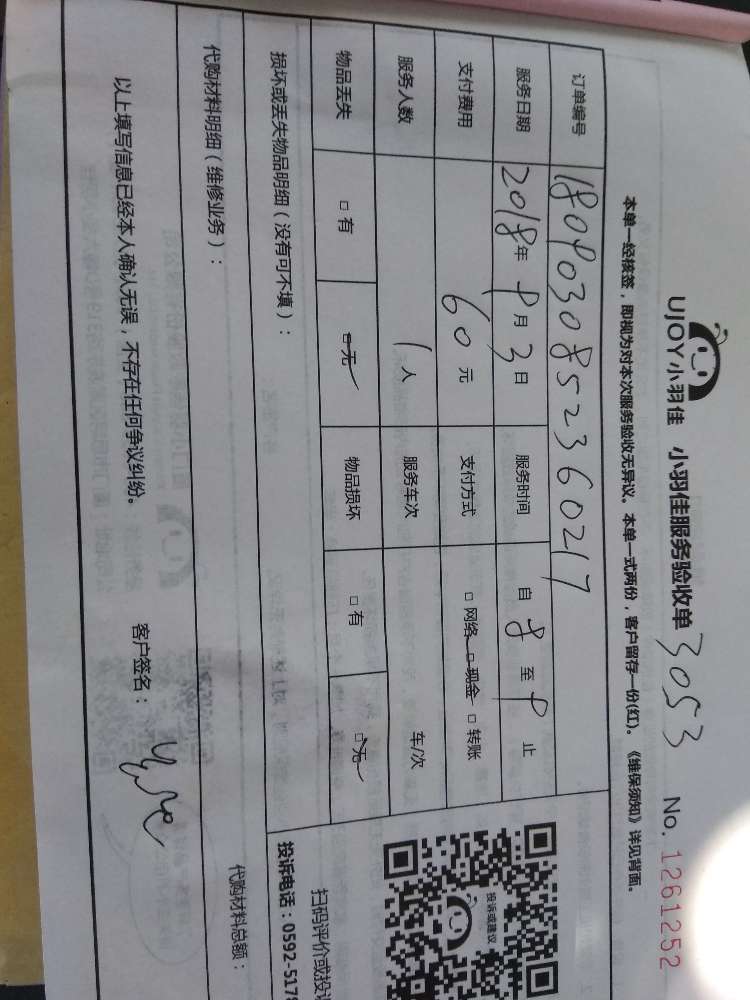 UJOY小羽佳 小羽佳服务验收单 3053 No. 1261252
本单一经核签，即视为对本次服务验收无异议。本单一式两份，客户留存一份(红)。《维保须知》详见背面。
订单编号 1809030852360217
服务日期 2018年 9月 3日 服务时间 自 8 至 9 止
支付费用 60元 支付方式 □网络 □现金 □转账
服务人数 1人 服务车次 车/次
物品丢失 □有 □无 物品损坏 □有 □无
损坏或丢失物品明细（没有可不填）：
投诉或建议
扫码评价或投
投诉电话：0592-517
代购材料明细（维修业务）：
代购材料总额：
以上填写信息已经本人确认无误，不存在任何争议纠纷。 客户签名：